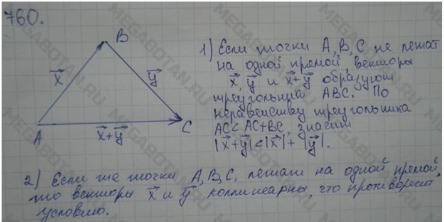 760.
B
x⃗
y⃗
A
x⃗+y⃗
C
1) Если точки A, B, C не лежат
на одной прямой векторы
x⃗, y⃗ и x⃗+y⃗ образуют
треугольник ABC. По
неравенству треугольника
AC<AC+BC, значит
|x⃗+y⃗|<|x⃗|+|y⃗|.
2) Если же точки, A, B, C, лежат на одной прямой,
то векторы x⃗ и y⃗ коллинеарны, что противоречит
условию.